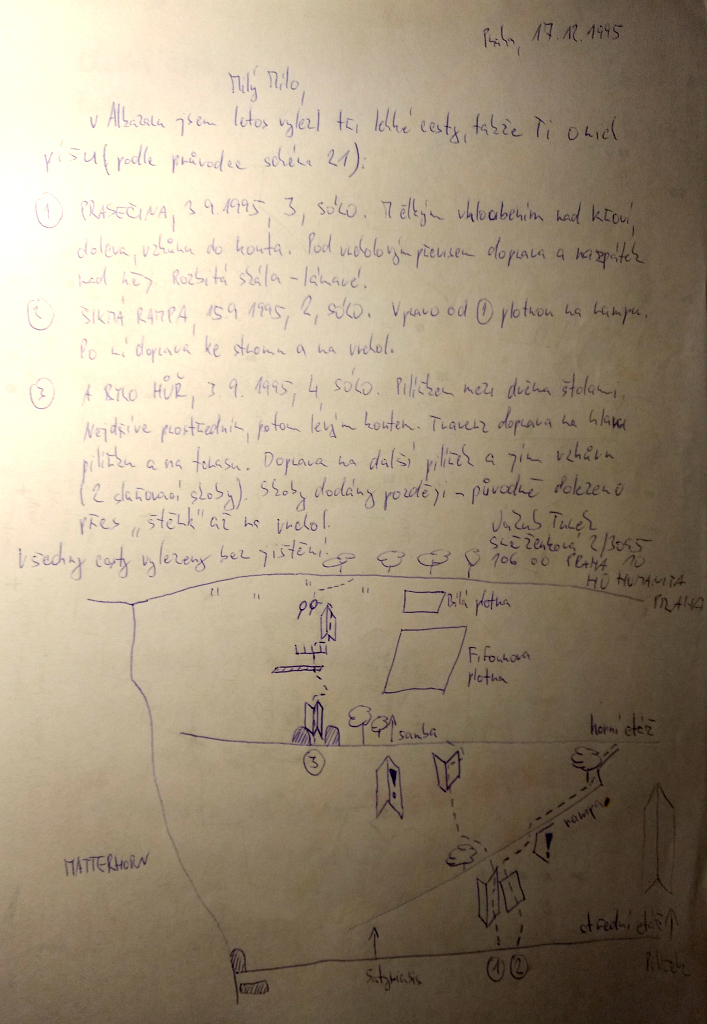 Praha, 17.12.1995
Milý Mílo,
v Alkazaru jsem letos vylezl tři lehké cesty, takže Ti o nich
píšu (podle průvodce schéma 21):
① PRASEČINA, 3.9.1995, 3, SÓLO. Mělkým vhloubením nad křoví,
doleva, vzhůru do kouta. Pod vrcholovým převisem doprava a nazpátek
nad něj. Rozbitá skála - lámavé.
② ŠIKMÁ RAMPA, 15.9.1995, 2, SÓLO. Vpravo od ① plotnou na rampu.
Po ní doprava ke stromu a na vrchol.
③ A BYLO HŮŘ, 3.9.1995, 4 SÓLO. Pilířkem mezi dvěma štolami.
Nejdříve prostředním, potom levým koutem. Traverz doprava na hlavu
pilířku a na terasu. Doprava na další pilířek a jím vzhůru
(2 slaňovací skoby). Skoby dodány později - původně dolezeno
přes „štěrk" až na vrchol.
Všechny cesty vylezeny bez jištění.
Sněženková 2/3095
106 00 PRAHA 10
HO HUMANITA
PRAHA
Bílá plotna
Fifounova
plotna
samba
horní etáž
③
rampa
MATTERHORN
střední etáž
Satymasis
① ②
Pilířek